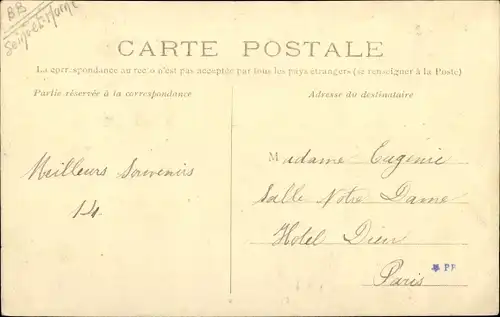 BB
CARTE POSTALE
La correspondance au recto n'est pas acceptée par tous les pays étrangers (se renseigner à la Poste)
Partie réservée à la correspondance
Adresse du destinataire
Meilleurs Souvenirs
14
Madame Eugénie
Salle Notre Dame
Hotel Dieu
Paris
PP